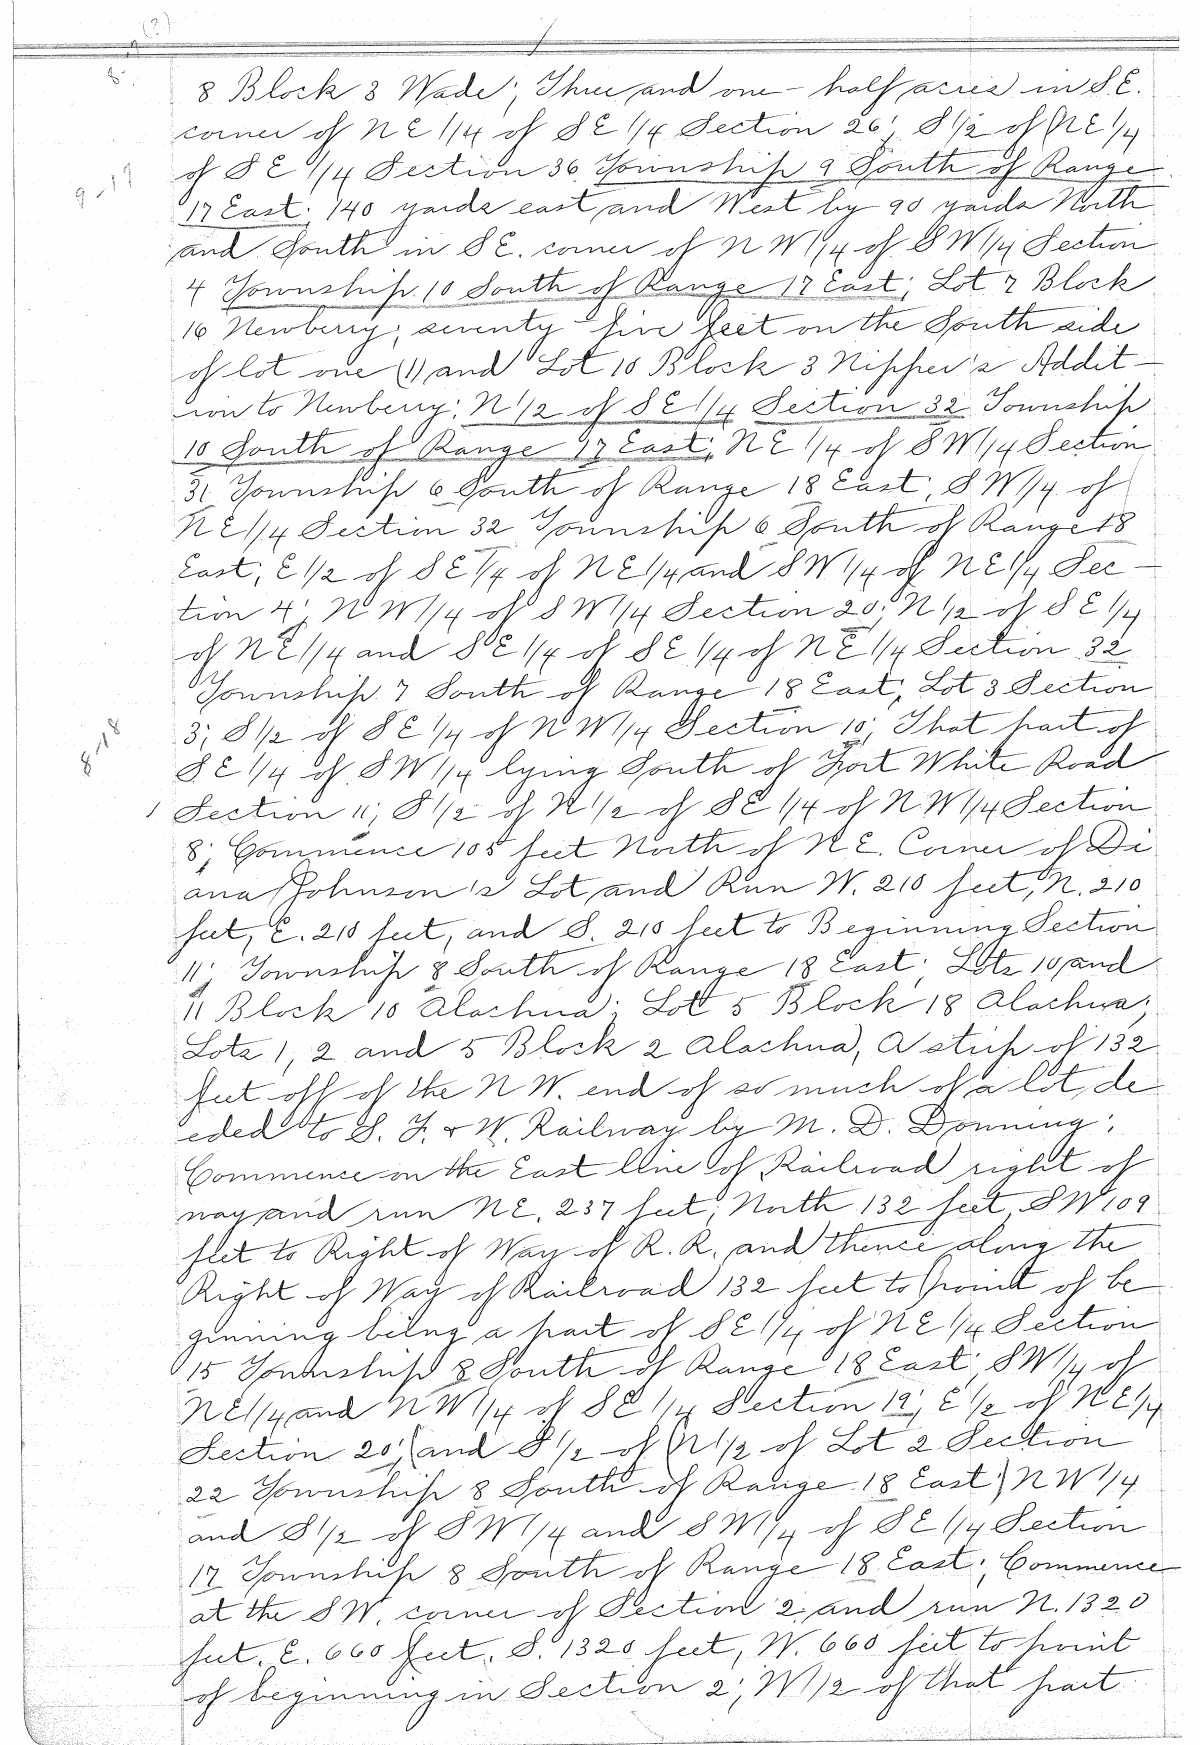 (2)
8
8 Block 3 Wade; Three and one-half acres in S.E.
corner of NE 1/4 of SE 1/4 Section 26; S 1/2 of NE 1/4
of SE 1/4 Section 36 Township 9 South of Range
9-17
17 East; 140 yards east and West by 90 yards North
and South in SE. corner of NW 1/4 of SW 1/4 Section
4 Township 10 South of Range 17 East; Lot 7 Block
16 Newberry; seventy-five feet on the South side
of lot one (1) and Lot 10 Block 3 Nipper's Addit-
ion to Newberry; N 1/2 of SE 1/4 Section 32 Township
10 South of Range 17 East; NE 1/4 of SW 1/4 Section
31 Township 6 South of Range 18 East; SW 1/4 of
NE 1/4 Section 32 Township 6 South of Range 18
East; E 1/2 of SE 1/4 of NE 1/4 and SW 1/4 of NE 1/4 Sec-
tion 4; NW 1/4 of SW 1/4 Section 20; N 1/2 of SE 1/4
of NE 1/4 and SE 1/4 of SE 1/4 of NE 1/4 Section 32
Township 7 South of Range 18 East; Lot 3 Section
8-18
3; S 1/2 of SE 1/4 of NW 1/4 Section 10; That part of
SE 1/4 of SW 1/4 lying South of Fort White Road
Section 11; S 1/2 of N 1/2 of SE 1/4 of NW 1/4 Section
8; Commence 105 feet North of NE. Corner of Di
ana Johnson's Lot and Run W. 210 feet, N. 210
feet, E. 210 feet, and S. 210 feet to Beginning Section
11; Township 8 South of Range 18 East; Lots 10 and
11 Block 10 Alachua; Lot 5 Block 18 Alachua;
Lots 1, 2 and 5 Block 2 Alachua, A strip of 132
feet off of the NW. end of so much of a lot de
eded to S. F. & W. Railway by M. D. Downing;
Commence on the East line of Railroad right of
way and run NE. 237 feet; North 132 feet, SW 109
feet to Right of Way of R. R. and thence along the
Right of Way of Railroad 132 feet to point of be
ginning being a part of SE 1/4 of NE 1/4 Section
15 Township 8 South of Range 18 East; SW 1/4 of
NE 1/4 and NW 1/4 of SE 1/4 Section 19; E 1/2 of NE 1/4
Section 20; (and S 1/2 of (N 1/2 of Lot 2 Section
22 Township 8 South of Range 18 East) NW 1/4
and S 1/2 of SW 1/4 and SW 1/4 of SE 1/4 Section
17 Township 8 South of Range 18 East; Commence
at the SW. corner of Section 2 and run N. 1320
feet, E. 660 feet, S. 1320 feet, W. 660 feet to point
of beginning in Section 2; W 1/2 of that part